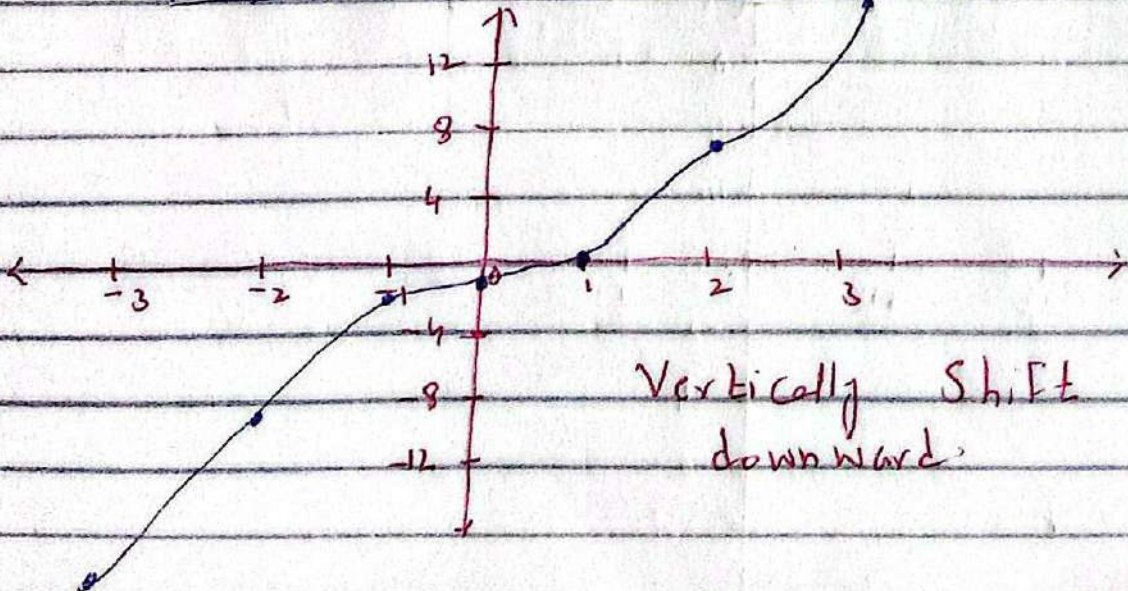 12
8
4
-3 -2 -1 0 1 2 3
-4
-8
-12
Vertically Shift
downward.